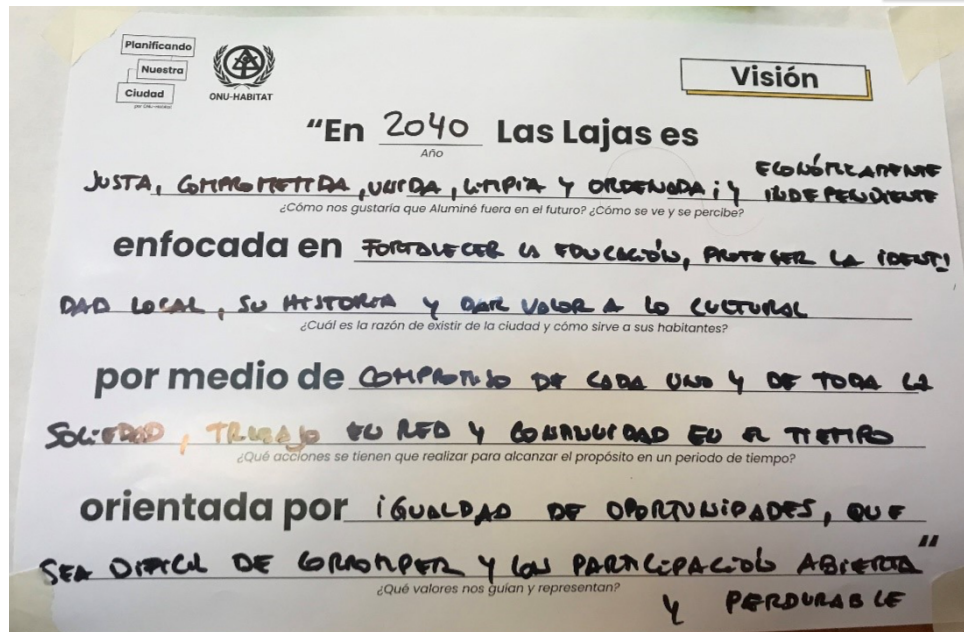 Planificando
Nuestra
Ciudad
por ONU-Habitat
ONU-HABITAT
Visión
“En 2040 Las Lajas es
Año
JUSTA, COMPROMETIDA, UNIDA, LIMPIA Y ORDENADA; Y ECONÓMICAMENTE
INDEPENDIENTE
¿Cómo nos gustaría que Aluminé fuera en el futuro? ¿Cómo se ve y se percibe?
enfocada en FORTALECER LA EDUCACIÓN, PROTEGER LA IDENTI
DAD LOCAL, SU HISTORIA Y DAR VALOR A LO CULTURAL
¿Cuál es la razón de existir de la ciudad y cómo sirve a sus habitantes?
por medio de COMPROMISO DE CADA UNO Y DE TODA LA
SOCIEDAD, TRABAJO EN RED Y CONTINUIDAD EN EL TIEMPO
¿Qué acciones se tienen que realizar para alcanzar el propósito en un periodo de tiempo?
orientada por IGUALDAD DE OPORTUNIDADES, QUE
SEA DIFICIL DE CORROMPER Y CON PARTICIPACIÓN ABIERTA”
¿Qué valores nos guían y representan?
Y PERDURABLE